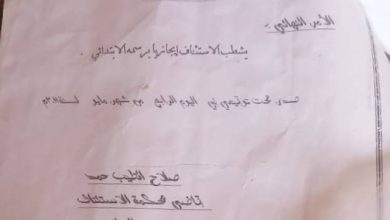 الأمر النهائي :-
يشطب الاستئناف إيجازياً برسمه الابتدائي
تحت توقيعي في اليوم الرابع من شهر مايو لسنة
صلاح الطيب حمد
قاضي محكمة الاستئناف